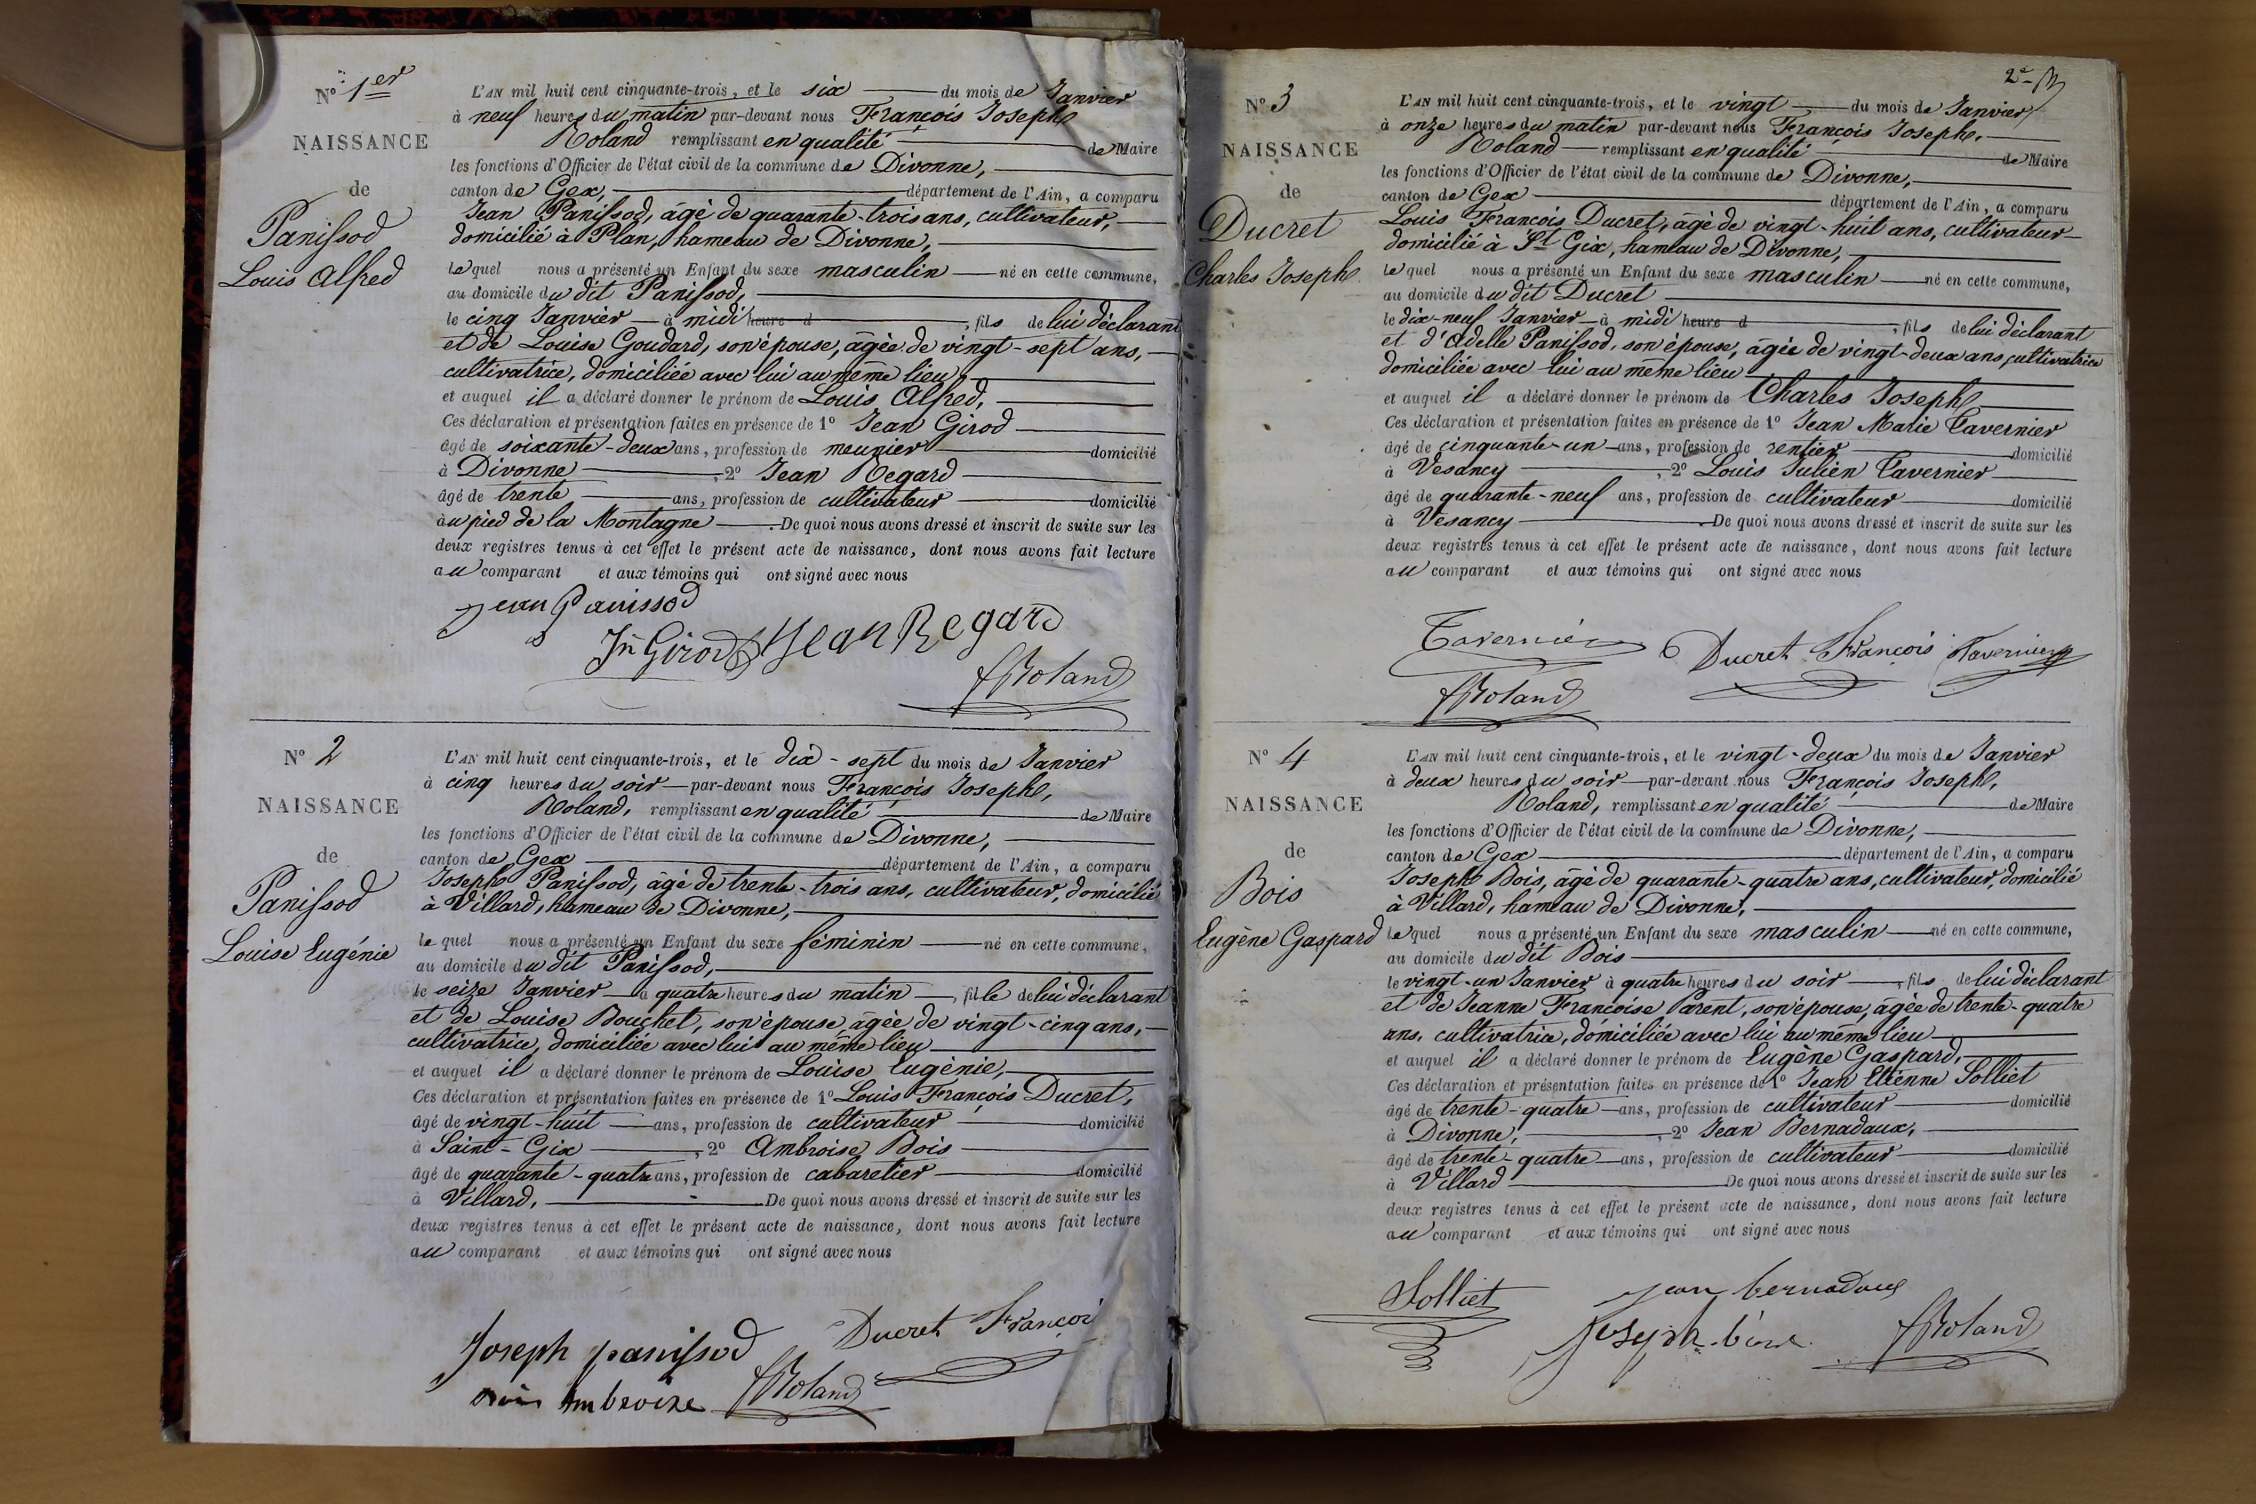 No 1er
NAISSANCE
de
Panissod
Louis Alfred
L'AN mil huit cent cinquante-trois, et le six du mois de Janvier
à neuf heures du matin par-devant nous François Joseph
Roland remplissant en qualité de Maire
les fonctions d'Officier de l'état civil de la commune de Divonne,
canton de Gex, département de l'Ain, a comparu
Jean Panissod, âgé de quarante-trois ans, cultivateur,
domicilié à Plan, hameau de Divonne,
lequel nous a présenté un Enfant du sexe masculin né en cette commune,
au domicile du dit Panissod,
le cinq Janvier à midi heure d , fils de lui déclarant
et de Louise Goudard, son épouse, âgée de vingt-sept ans,
cultivatrice, domiciliée avec lui au même lieu
et auquel il a déclaré donner le prénom de Louis Alfred,
Ces déclaration et présentation faites en présence de 1º Jean Girod
âgé de soixante-deux ans, profession de meunier domicilié
à Divonne , 2º Jean Regard
âgé de trente ans, profession de cultivateur domicilié
au pied de la Montagne . De quoi nous avons dressé et inscrit de suite sur les
deux registres tenus à cet effet le présent acte de naissance, dont nous avons fait lecture
au comparant et aux témoins qui ont signé avec nous
Jean Panissod
Jn Girod Jean Regard
FRoland
No 2
NAISSANCE
de
Panissod
Louise Eugénie
L'AN mil huit cent cinquante-trois, et le dix-sept du mois de Janvier
à cinq heures du soir par-devant nous François Joseph,
Roland, remplissant en qualité de Maire
les fonctions d'Officier de l'état civil de la commune de Divonne,
canton de Gex département de l'Ain, a comparu
Joseph Panissod, âgé de trente-trois ans, cultivateur, domicilié
à Villard, hameau de Divonne,
lequel nous a présenté un Enfant du sexe féminin né en cette commune,
au domicile du dit Panissod,
le seize Janvier à quatre heures du matin , fille de lui déclarant
et de Louise Bouchet, son épouse, âgée de vingt-cinq ans,
cultivatrice, domiciliée avec lui au même lieu
et auquel il a déclaré donner le prénom de Louise Eugénie,
Ces déclaration et présentation faites en présence de 1º Louis François Ducret,
âgé de vingt-huit ans, profession de cultivateur domicilié
à Saint-Gix , 2º Ambroise Bois
âgé de quarante-quatre ans, profession de cabaretier domicilié
à Villard, De quoi nous avons dressé et inscrit de suite sur les
deux registres tenus à cet effet le présent acte de naissance, dont nous avons fait lecture
au comparant et aux témoins qui ont signé avec nous
Joseph panissod Ducret François
Ambroise FRoland
2e
No 3
NAISSANCE
de
Ducret
Charles Joseph
L'AN mil huit cent cinquante-trois, et le vingt du mois de Janvier
à onze heures du matin par-devant nous François Joseph,
Roland remplissant en qualité de Maire
les fonctions d'Officier de l'état civil de la commune de Divonne,
canton de Gex département de l'Ain, a comparu
Louis François Ducret, âgé de vingt-huit ans, cultivateur
domicilié à St Gix, hameau de Divonne,
lequel nous a présenté un Enfant du sexe masculin né en cette commune,
au domicile du dit Ducret
le dix-neuf Janvier à midi heure d , fils de lui déclarant
et d'Adelle Panissod, son épouse, âgée de vingt-deux ans, cultivatrice
domiciliée avec lui au même lieu
et auquel il a déclaré donner le prénom de Charles Joseph
Ces déclaration et présentation faites en présence de 1º Jean Marie Tavernier
âgé de cinquante-un ans, profession de rentier domicilié
à Vesancy , 2º Louis Julien Tavernier
âgé de quarante-neuf ans, profession de cultivateur domicilié
à Vesancy . De quoi nous avons dressé et inscrit de suite sur les
deux registres tenus à cet effet le présent acte de naissance, dont nous avons fait lecture
au comparant et aux témoins qui ont signé avec nous
Tavernier Ducret François Tavernier
FRoland
No 4
NAISSANCE
de
Bois
Eugène Gaspard
L'AN mil huit cent cinquante-trois, et le vingt-deux du mois de Janvier
à deux heures du soir par-devant nous François Joseph,
Roland, remplissant en qualité de Maire
les fonctions d'Officier de l'état civil de la commune de Divonne,
canton de Gex département de l'Ain, a comparu
Joseph Bois, âgé de quarante-quatre ans, cultivateur, domicilié
à Villard, hameau de Divonne,
lequel nous a présenté un Enfant du sexe masculin né en cette commune,
au domicile du dit Bois
le vingt-un Janvier à quatre heures du soir , fils de lui déclarant
et de Jeanne Françoise Parent, son épouse, âgée de trente-quatre
ans, cultivatrice, domiciliée avec lui au même lieu
et auquel il a déclaré donner le prénom de Eugène Gaspard,
Ces déclaration et présentation faites en présence de 1º Jean Etienne Solliet
âgé de trente-quatre ans, profession de cultivateur domicilié
à Divonne, , 2º Jean Bernadaux,
âgé de trente-quatre ans, profession de cultivateur domicilié
à Villard De quoi nous avons dressé et inscrit de suite sur les
deux registres tenus à cet effet le présent acte de naissance, dont nous avons fait lecture
au comparant et aux témoins qui ont signé avec nous
Solliet jean bernadaux
Joseph FRoland